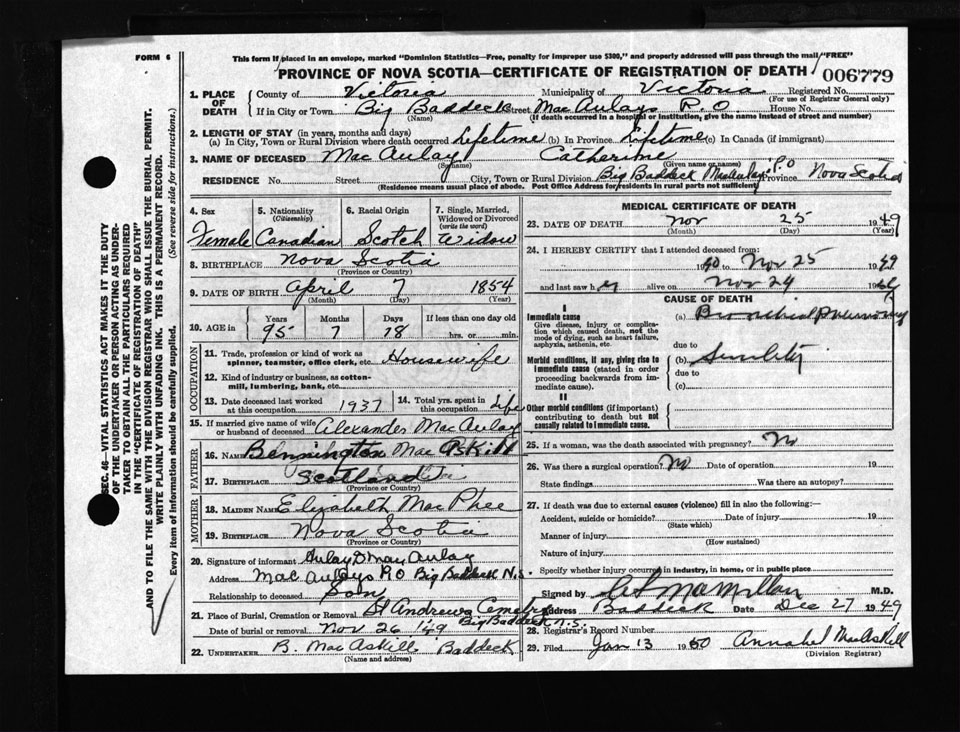 FORM 6
This form if placed in an envelope, marked "Dominion Statistics—Free, penalty for improper use $300," and properly addressed will pass through the mail "FREE"
PROVINCE OF NOVA SCOTIA—CERTIFICATE OF REGISTRATION OF DEATH
006779
1. PLACE OF DEATH County of Victoria Municipality of Victoria Registered No.
(For use of Registrar General only)
If in City or Town Big Baddeck Street Mac Aulays P.O House No.
(Name) (If death occurred in a hospital or institution, give the name instead of street and number)
2. LENGTH OF STAY (in years, months and days)
(a) In City, Town or Rural Division where death occurred Lifetime (b) In Province Lifetime (c) In Canada (if immigrant)
3. NAME OF DECEASED Mac Aulay Catherine
(Surname) (Given name or names)
RESIDENCE No. Street City, Town or Rural Division Big Baddeck P.O Province Nova Scotia
(Residence means usual place of abode. Post Office Address for residents in rural parts not sufficient)
4. Sex Female
5. Nationality (Citizenship) Canadian
6. Racial Origin Scotch
7. Single, Married, Widowed or Divorced (write the word) Widow
8. BIRTHPLACE Nova Scotia
(Province or Country)
9. DATE OF BIRTH April 7 1854
(Month) (Day) (Year)
10. AGE in Years Months Days If less than one day old
95 7 18 hrs. or min.
OCCUPATION
11. Trade, profession or kind of work as spinner, teamster, office clerk, etc. Housewife
12. Kind of industry or business, as cotton-mill, lumbering, bank, etc.
13. Date deceased last worked at this occupation 1937
14. Total yrs. spent in this occupation Life
15. If married give name of wife or husband of deceased Alexander Mac Aulay
FATHER
16. NAME Bennington Mac
17. BIRTHPLACE Scotland
(Province or Country)
MOTHER
18. MAIDEN NAME Elizabeth Mac Phee
19. BIRTHPLACE Nova Scotia
(Province or Country)
20. Signature of informant Aulay D Mac Aulay
Address Mac Aulays P.O Big Baddeck N.S.
Relationship to deceased Son
21. Place of Burial, Cremation or Removal St Andrews Cemetry
Big Baddeck N.S.
Date of burial or removal Nov 26 1949
22. UNDERTAKER B. MacAskill Baddeck
(Name and address)
MEDICAL CERTIFICATE OF DEATH
23. DATE OF DEATH Nov 25 1949
(Month) (Day) (Year)
24. I HEREBY CERTIFY that I attended deceased from:
1940 to Nov 25 1949
and last saw her alive on Nov 24 19
CAUSE OF DEATH
I
Immediate cause
Give disease, injury or complication which caused death, not the mode of dying, such as heart failure, asphyxia, asthenia, etc.
(a) Bronchial Pneumony
due to
Morbid conditions, if any, giving rise to Immediate cause (stated in order proceeding backwards from immediate cause)
(b) Senility
due to
(c)
II
Other morbid conditions (if important) contributing to death but not causally related to Immediate cause.
25. If a woman, was the death associated with pregnancy? No
26. Was there a surgical operation? No Date of operation 19
State findings Was there an autopsy?
27. If death was due to external causes (violence) fill in also the following:
Accident, suicide or homicide? Date of injury 19
(State which)
Manner of injury
(How sustained)
Nature of injury
Specify whether injury occurred in industry, in home, or in public place
Signed by MacMillan M.D.
Address Baddeck Date Dec 27 1949
28. Registrar's Record Number
29. Filed Jan 13 1950 Annabel MacAskill
(Division Registrar)
SEC. 46—VITAL STATISTICS ACT MAKES IT THE DUTY
OF THE UNDERTAKER OR PERSON ACTING AS UNDER-
TAKER TO OBTAIN ALL THE PARTICULARS REQUIRED
IN THE "CERTIFICATE OF REGISTRATION OF DEATH"
AND TO FILE THE SAME WITH THE DIVISION REGISTRAR WHO SHALL ISSUE THE BURIAL PERMIT.
WRITE PLAINLY WITH UNFADING INK. THIS IS A PERMANENT RECORD.
Every item of information should be carefully supplied. (See reverse side for instructions.)